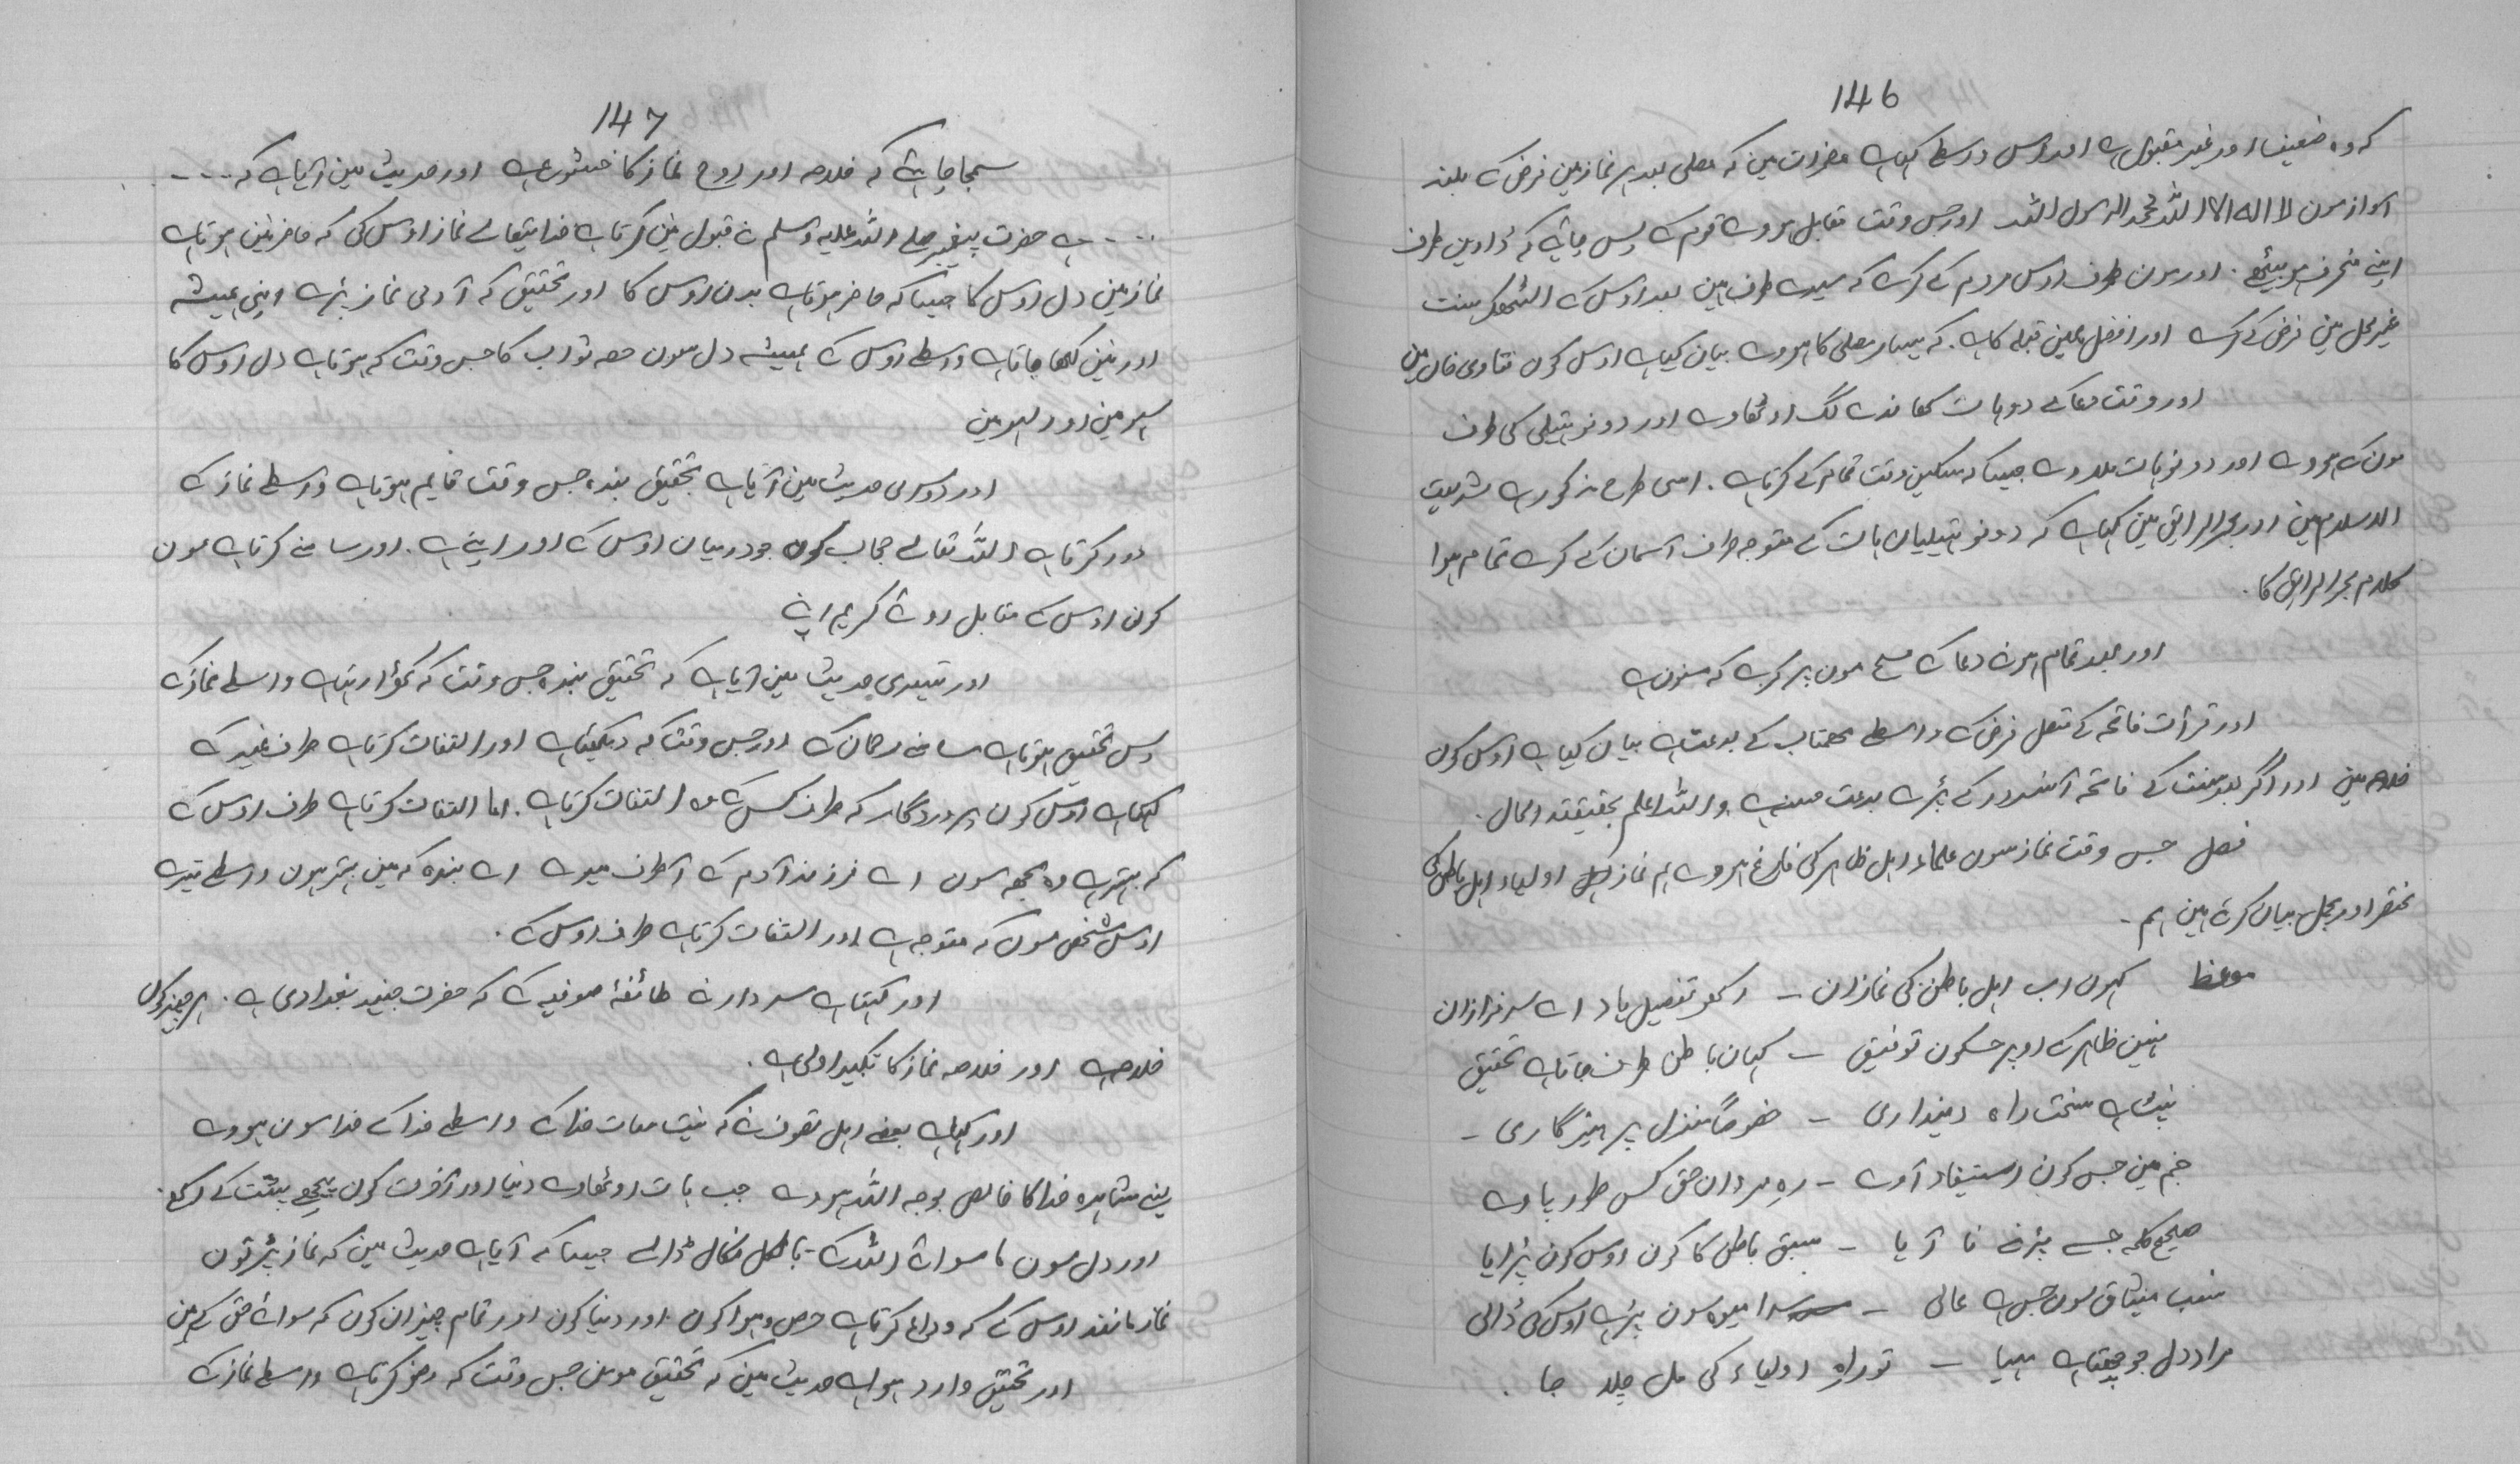 146
کہ وہ ضعیف اور غیر مقبول ہے اور اس واسطے کہا ہے مضرات مین کہ مصلی بعد ہر نماز مین فرض کے بلند
آواز سون لا الہ الا اللہ محمد الرسول اللہ اور جس وقت مقابل ہووے قوم کے پس چاہئے کہ داوین طرف
اپنے منحرف ہو بیٹھے . اور مون طرف اوس مردم کے کرے کہ سیدے طرف ہین بعد اوس کے اٹھکر سنت
غیر محل مین فرض کے کرے اور افضل یمین قبلہ کا ہے . کہ یسار مصلی کا ہووے بیان کیا ہے اوس کون فتاوی خان مین
اور وقت دعا کے دو ہات کھاندے لگ اوٹھاوے اور دونو ہتیلی کی طرف
مون کے ہووے اور دونو ہات ملاوے جیسا کہ مسکین وقت تماس کے کرتا ہے . اسی طرح مذکور ہے شریعت
الاسلام مین اور بحر الرایق مین کہا ہے کہ دونو ہتیلیان ہات کے متوجہ طرف آسمان کے کرے تمام ہوا
کلام بحر الرایق کا .
اور بعد تمام ہونے دعا کے مسح مون پر کرے کہ مسنون ہے
اور قرأت فاتحہ کے متصل فرض کے واسطے مہمات کے بدعت ہے بیان کیا ہے اوس کون
خلاصہ مین اور اگر بعد سنت کے فاتحہ آنسرور کے پڑے بدعت حسنہ ہے واللہ اعلم بحقیقتہ الحال .
فصل جس وقت نماز سون علماء اہل ظاہر کی فارغ ہووے ہم نماز اولیاء اہل باطن کی
مختصر اور مجمل بیان کرتے ہین ہم -
موعظ کہون اب اہل باطن کی نمازان - رکھو تفصیل یاد اے سرفرازان
نہین ظاہر کے اوپر جسکون توفیق - کہان باطن طرف جاتا ہے تحقیق
نپٹ ہے سخت راہ دینداری - خصوصًا منزل پرہیزگاری -
خم مین جس کون استیفاد آوے - رہِ مردان حق کس طور پاوے
صحیح کلمہ جسے پڑنے نا آیا - سبق باطن کا کون اوس کون پڑایا
نصب میثاق سون جس ہے عالی - سدا میوہ سون پڑ ہے اوس کی ڈالی
مراد دل جو چہتا ہے میا - تو راہِ اولیاء کی مل چلا جا .
147
سمجا چاہئے کہ خلاصہ اور روح نماز کا خشوع ہے اور حدیث مین آیا ہے کہ ...
.... ہے حضرت پیغمبر صلے اللہ علیہ وسلم نے قبول نین کرتا ہے خدا یتعالے نماز اوس کی کہ حاضر نین ہوتا ہے
نماز مین دل اوس کا جیسا کہ حاضر ہوتا ہے بدن اوس کا اور تحقیق کہ آدمی نماز پڑے اپنی ہمیشہ
اور نین لکھا جاتا ہے واسطے اوس کے ہمیشہ دل سون حصہ ثواب کا جس وقت کہ ہوتا ہے دل اوس کا
سہو مین اور لہو مین
اور دوسری حدیث مین آیا ہے تحقیق بندہ جس وقت قایم ہوتا ہے واسطے نماز کے
دور کرتا ہے اللہ تعالے حجاب کون جو درمیان اوس کے اور اپنے ہے . اور سامنے کرتا ہے مون
کون اوس کے مقابل روئے کریم اپنے
اور تیسری حدیث مین آیا ہے کہ تحقیق بندہ جس وقت کہ کھڑا رہتا ہے واسطے نماز کے
پس تحقیق ہوتا ہے سامنے رحمان کے اور جس وقت کہ دیکھتا ہے اور التفات کرتا ہے طرف غیر کے
کہتا ہے اوس کون پروردگار کہ طرف کس کے وہ التفات کرتا ہے . اما التفات کرتا ہے طرف اوس کے
کہ بہتر ہے وہ مجھ سون اے فرزند آدم کے آ طرف میرے اے بندہ کہ مین بہتر ہون واسطے تیرے
اوس شخص سون کہ متوجہ ہے اور التفات کرتا ہے طرف اوس کے .
اور کہتا ہے سردار نے طائفۂ صوفیہ کے کہ حضرت جنید بغدادی ہے . ہر چیز کون
خلاصہ ہے اور خلاصہ نماز کا تکبیر اولی ہے .
اور کہا ہے بعضے اہل تصوف نے کہ نیت سات خدا کے واسطے خدا کے خدا سون ہووے
یعنے مشاہدہ خدا کا خالص بوجہ اللہ ہووے جب ہات اوٹھاوے دنیا اور آخرت کون پیچھے پشت کے رکھے .
اور دل سون ما سوائے اللہ کے بالکل نکال ڈالے جیسا کہ آیا ہے حدیث مین کہ نماز پڑ تون
نماز مانند اوس کے کہ وداع کرتا ہے حرص وہوا کون اور دنیا کون اور تمام چیزان کون کہ سوائے حق کے ہین
اور تحقیق وارد ہوا ہے حدیث مین کہ تحقیق مومن جس وقت کہ وضو کرتا ہے واسطے نماز کے